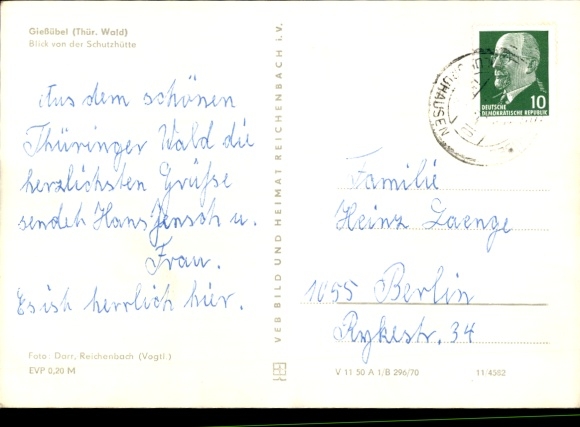 Gießübel (Thür. Wald)
Blick von der Schutzhütte
Aus dem schönen
Thüringer Wald die
herzlichsten Grüße
sendet Hans Jensch u.
Frau.
Es ist herrlich hier.
Foto: Darr, Reichenbach (Vogtl.)
EVP 0,20 M
VEB BILD UND HEIMAT REICHENBACH i.V.
DEUTSCHE
DEMOKRATISCHE REPUBLIK
10
Familie
Heinz Laenge
1055 Berlin
Rykestr. 34
V 11 50 A 1/B 296/70
11/4582